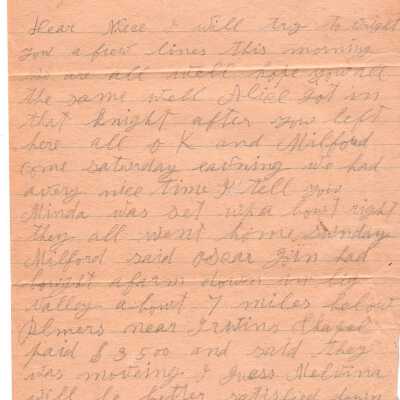 Dear Niece I will try to wright
you a frew lines this morning
we are all well hope you all
the same well Alice got in
that knight after you left
here all O K and Milford
come saturday eavning we had
avery nice time I tell you
Minda was set up a bowt right
they all went home Sunday
Milford said Oscar had
bought afarm down in big
valley abowt 7 miles below
Elmers near Irwins Chapel
paid $ 3500 and said they
was moveing I Guess Melvina
will be better satisfied down